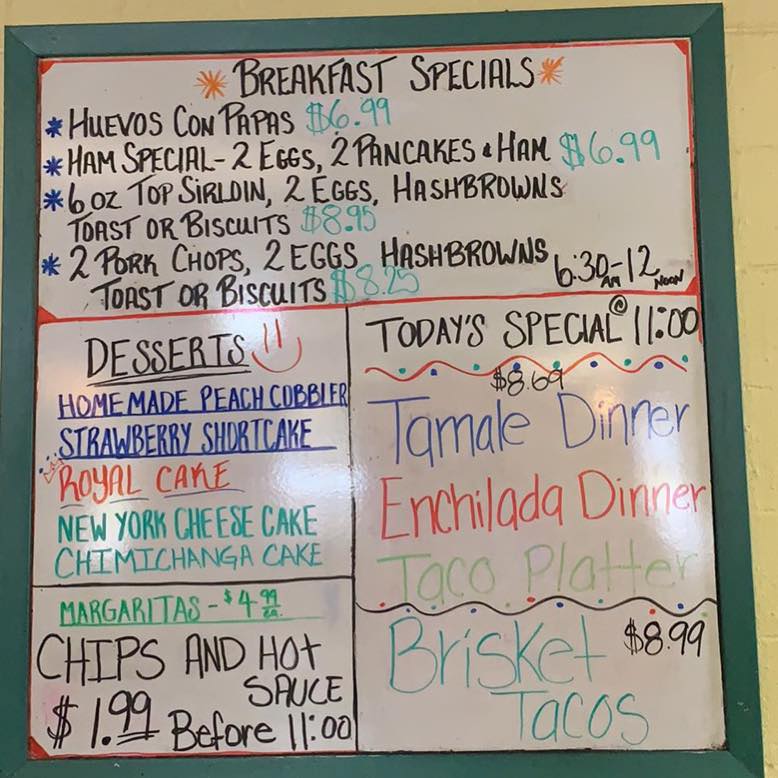 BREAKFAST SPECIALS
* HUEVOS CON PAPAS $6.99
* HAM SPECIAL - 2 EGGS, 2 PANCAKES & HAM $6.99
* 6 OZ TOP SIRLOIN, 2 EGGS, HASHBROWNS
TOAST OR BISCUITS $8.95
* 2 PORK CHOPS, 2 EGGS HASHBROWNS
TOAST OR BISCUITS $8.25
6:30AM-12 NOON
DESSERTS
HOMEMADE PEACH COBBLER
STRAWBERRY SHORTCAKE
ROYAL CAKE
NEW YORK CHEESE CAKE
CHIMICHANGA CAKE
MARGARITAS - $4.99 EA.
CHIPS AND HOT
SAUCE
$1.99 Before 11:00
TODAY'S SPECIAL @ 11:00
$8.69
Tamale Dinner
Enchilada Dinner
Taco Platter
Brisket $8.99
Tacos